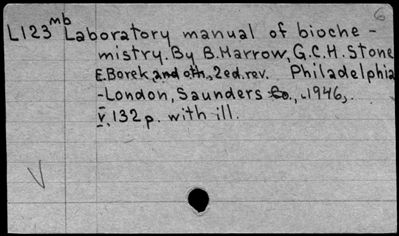 6
L123 mb Laboratory manual of bioche-
mistry. By B. Harrow, G.C.H. Stone
E. Borek, and oth., 2ed. rev. Philadelphia
-London, Saunders Co., c1946,.
v, 132 p. with ill.